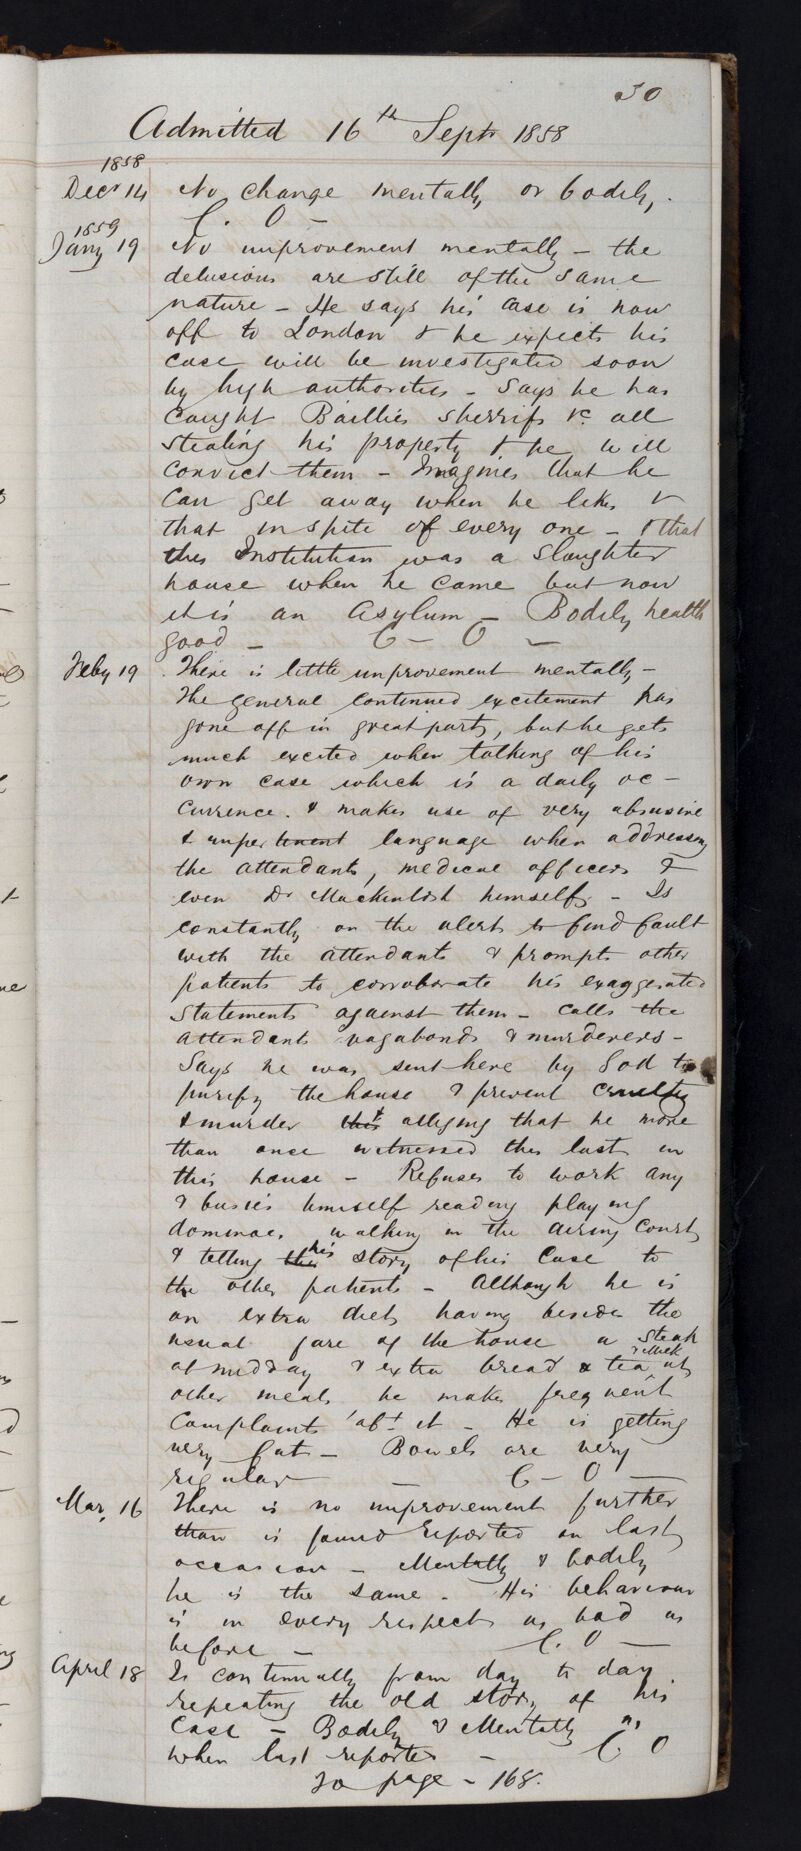 30
Admitted 16th Septr 1858
1858
Decr 14 No change mentally or bodily.
C. O –
1859
Jany 19 No improvement mentally – the
delusions are still of the same
nature – He says his case is now
off to London & he expects his
case will be investigated soon
by high authorities – Says he has
caught Baillies sherrifs &c all
stealing his property & he will
convict them – Imagines that he
can get away when he likes &
that in spite of every one – & that
this Institution was a Slaughter
house when he came but now
it is an Asylum – Bodily health
good – C – O –
Feby 19 There is little improvement mentally –
The general continued excitement has
gone off in great part, but he gets
much excited when talking of his
own case which is a daily oc –
currence. & makes use of very abusive
& impertinent language when addressing
the attendants, medical officers &
even Dr Mackintosh himself – Is
constantly on the alert to find fault
with the attendants & prompts other
patients to corroborate his exaggerated
statements against them – calls the
attendants vagabonds & murderers –
Says he was sent here by God to
purify the house & prevent cruelty
& murder this & alleging that he more
than once witnessed this last in
this house – Refuses to work any
& busies himself reading playing
dominoes, walking in the airing Courts
& telling the his story of his Case to
the other patients – Although he is
on extra diets having besides the
usual fare of the house a steak
at midday & extra bread & tea & milk at
other meals he makes frequent
complaints abt it – He is getting
very fat – Bowels are very
regular – C – O –
Mar. 16 There is no improvement further
than is found reported on last
occasion – Mentally & bodily
he is the same. His behaviour
is in every respect as bad as
before – C. O –
April 18 Is continually from day to day
repeating the old story of his
Case – Bodily & Mentally as
when last reported – C O
To page – 168.